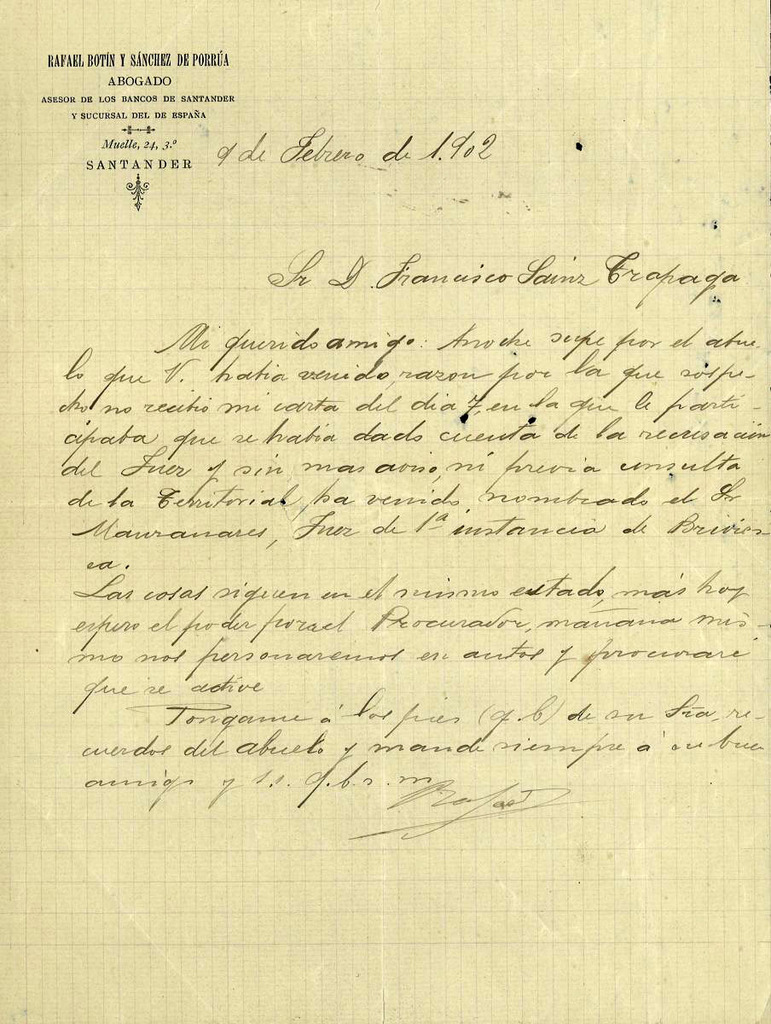 RAFAEL BOTÍN Y SÁNCHEZ DE PORRÚA
ABOGADO
ASESOR DE LOS BANCOS DE SANTANDER
Y SUCURSAL DEL DE ESPAÑA
Muelle, 24, 3.º
SANTANDER
9 de Febrero de 1.902
Sr D. Francisco Sainz Trapaga
Mi querido amigo: Anoche supe por el abue-
lo que V. habia venido, razon por la que sospe-
cho no recibió mi carta del dia 7, en la que le parti-
cipaba que se habia dado cuenta de la recusación
del Juez y sin mas aviso, ni previa consulta
de la Territorial, ha venido nombrado el Sr
Manzanares, Juez de 1ª instancia de Brivies-
ca.
Las cosas siguen en el mismo estado, más hoy
espero el poder para el Procurador, mañana mis-
mo nos personaremos en autos y procuraré
que se active
Pongame á los pies (q.b) de su Sra, re-
cuerdos del abuelo y mande siempre á su buen
amigo y s.s. q.b.s.m.
Rafael